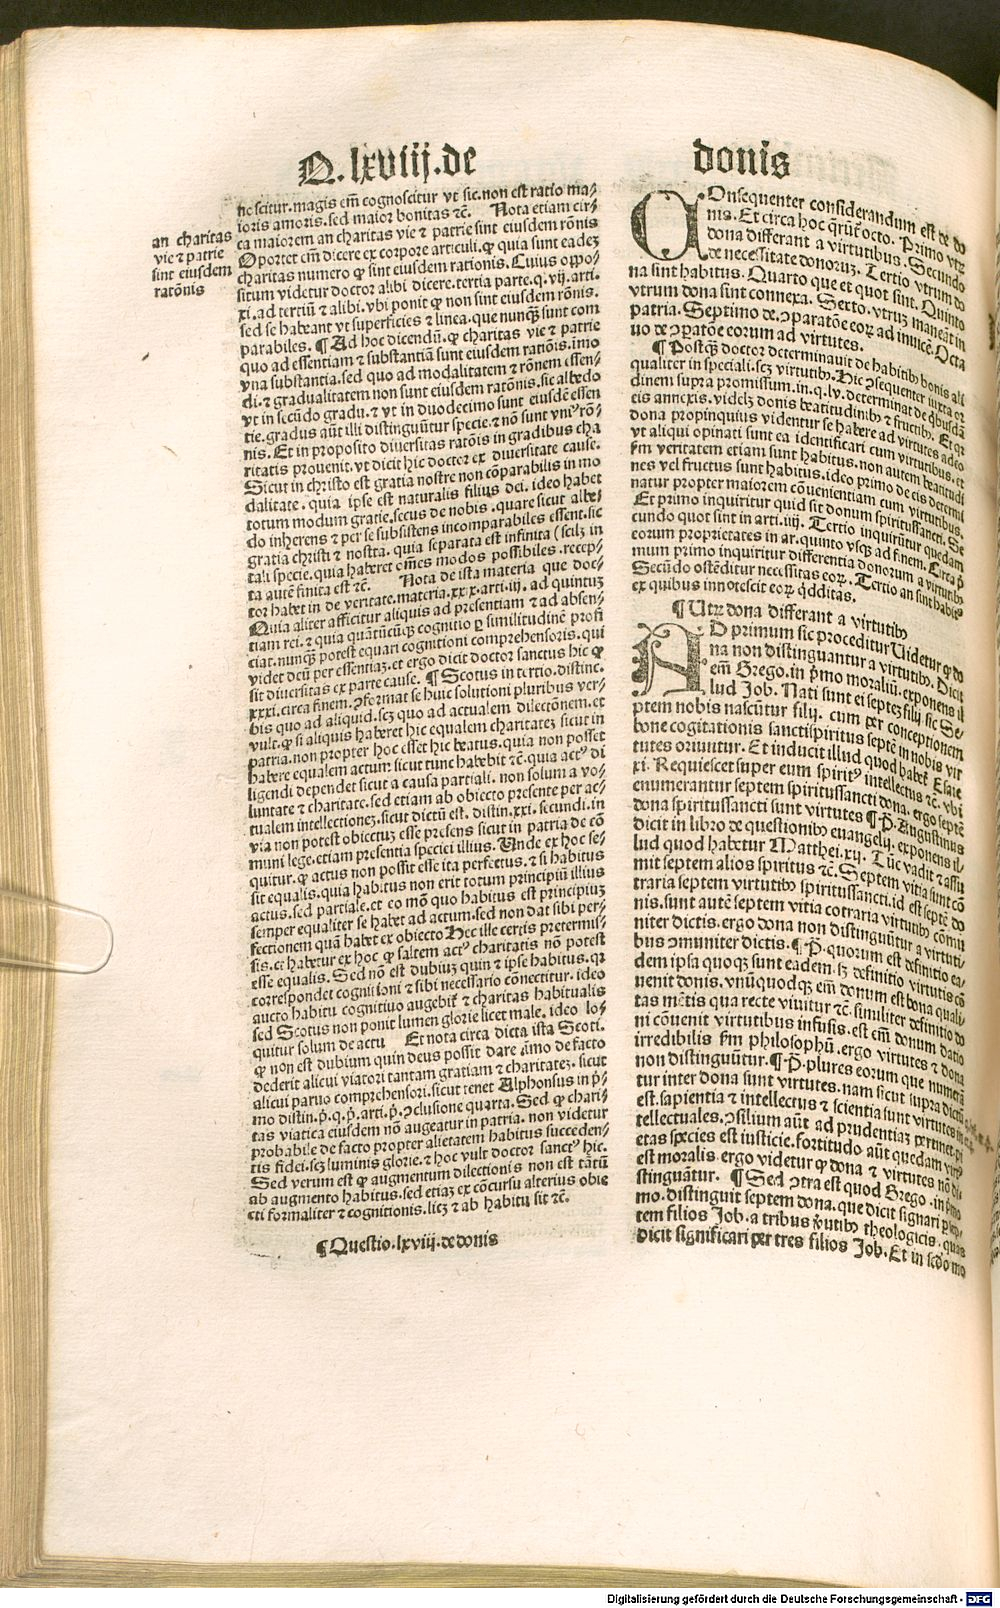 Q. lxviij. de donis
an charitas
vie et patrie
sint eiusdem
ratōnis
ne scitur. magis em̄ cognoscitur vt sic. non est ratio ma⸗
ioris amoris. sed maior bonitas ꝛc̄. Nota etiam cir⸗
ca maiorem an charitas vie ⁊ patrie sint eiusdem rōnis
Oportet em̄ dicere ex corpore articuli. ꝙ quia sunt eadeꝫ
charitas numero ꝙ sint eiusdem rationis. Cuius oppo⸗
situm videtur doctor alibi dicere. tertia parte. q. vij. arti.
xi. ad tertiū ⁊ alibi. vbi ponit ꝙ non sint eiusdem rōnis.
sed se habeant vt superficies ⁊ linea. que nunqꝫ sunt com
parabiles. ¶ Ad hoc dicendū. ꝙ charitas vie ⁊ patrie
quo ad essentiam ⁊ substantiā sunt eiusdem ratiōis. imo
vna substantia. sed quo ad modalitatem ⁊ rōnem essen⸗
di. ⁊ gradualitatem non sunt eiusdem ratōnis. sic albedo
vt in secūdo gradu. ⁊ vt in duodecimo sunt eiusdē essen
tie. gradus aūt illi distinguūtur specie. ⁊ nō sunt vniꝰ rō⸗
nis. Et in proposito diuersitas ratōis in gradibus cha
ritatis prouenit. vt dicit hic doctor ex diuersitate cause.
Sicut in christo est gratia nostre non cōparabilis in mo
dalitate. quia ipse est naturalis filius dei. ideo habet
totum modum gratie. secus de nobis. quare sicut albe⸗
do inherens ⁊ per se subsistens incomparabiles essent. sic
gratia christi ⁊ nostra. quia separata est infinita (scilꝫ in
tali specie. quia haberet om̄es modos possibiles. recep⸗
ta autē finita est ꝛc̄. Nota de ista materia que doc⸗
tor habet in de veritate. materia. xxix. arti. iij. ad quintuꝫ
Quia aliter afficitur aliquis ad presentiam ⁊ ad absen⸗
tiam rei. ⁊ quia quātūcūqꝫ cognitio ꝑ similitudinē profi
ciat. nunqꝫ potest equari cognitioni comprehensoris. qui
videt deū per essentiaꝫ. et ergo dicit doctor sanctus hic ꝙ
sit diuersitas ex parte cause. ¶ Scotus in tertio. distinc.
xxxi. circa finem. ꝯformat se huic solutioni pluribus ver⸗
bis quo ad aliquid. scꝫ quo ad actualem dilectōnem. et
vult. ꝙ si aliquis haberet hic equalem charitateꝫ sicut in
patria. non propter hoc esset hic beatus. quia non posset
habere equalem actum sicut tunc habebit ꝛc̄. quia actꝰ di
ligendi dependet sicut a causa partiali. non solum a vo⸗
luntate ⁊ charitate. sed etiam ab obiecto presente per ac⸗
tualem intellectioneꝫ. sicut dictū est. distin. xxi. secundi. in
via non potest obiectuꝫ esse presens sicut in patria de cō
muni lege. etiam presentia speciei illius. Unde ex hoc se⸗
quitur. ꝙ actus non possit esse ita perfectus. ⁊ si habitus
sit equalis. quia habitus non erit totum principiū illius
actus. sed partiale. et eo mō quo habitus est principiuꝫ
semper equaliter se habet ad actum. sed non dat sibi per⸗
fectionem quā habet ex obiecto Hec ille certis pretermis⸗
sis. et habetur ex hoc ꝙ saltem actꝰ charitatis nō potest
esse equalis. Sed nō est dubiuꝫ quin ⁊ ipse habitus. qꝛ
correspondet cognitioni ⁊ sibi necessario cōnectitur. ideo
aucto habitu cognitiuo augebiť ⁊ charitas habitualis
sed Scotus non ponit lumen glorie licet male. ideo lo⸗
quitur solum de actu Et nota circa dicta ista Scoti.
ꝙ non est dubium quin deus possit dare ⁊mo de facto
dederit alicui viatori tantam gratiam ⁊ charitateꝫ. sicut
alicui paruo comprehensori. sicut tenet Alphonsus in p̄⸗
mo distin. p̄. q. p̄. arti. p̄. ꝯclusione quarta. Sed ꝙ chari⸗
tas viatica eiusdem nō augeatur in patria. non videtur
probabile de facto propter alietatem habitus succeden⸗
tis fidei. scꝫ luminis glorie. ⁊ hoc vult doctor sanctꝰ hic.
Sed verum est ꝙ augmentum dilectionis non est tātū
ab augmento habitus. sed etiaꝫ ex cōcursu alterius obie
cti formaliter ⁊ cognitionis. licꝫ ⁊ ab habitu sit ꝛc̄.
¶ Questio. lxviij. de donis
COnsequenter considerandum est de do
nis. Et circa hoc q̄rūť octo. Primo vtrꝫ
dona differant a virtutibus. Secundo
de necessitate donoruꝫ. Tertio vtrum do
na sint habitus. Quarto que et quot sint. Quinto
vtrum dona sint connexa. Sexto. vtruꝫ maneāt in
patria. Septimo de. ꝯparatōe eoꝝ ad inuicē. Octa
uo de ꝯpatōe eorum ad virtutes.
¶ Postqꝫ doctor determinauit de habitibꝫ bonis ali
qualiter in speciali. scꝫ virtutibꝫ. Hic ꝯsequenter iuxta or
dinem supra promissum. in. q. lv. determinat de q̄busdā
eis annexis. videlꝫ donis beatitudinibꝫ ⁊ fructibꝫ. Et qꝛ
dona propinquius videntur se habere ad virtutes adeo
vt aliqui opinati sunt ea identificari cum virtutibus. et
ẜm veritatem etiam sunt habitus. non autem beatitudi
nes vel fructus sunt habitus. ideo primo de eis determi
natur propter maiorem cōuenientiam cum virtutibus.
Et primo inquiritur quid sit donum spiritussancti. Se
cundo quot sint in arti. iiij. Tertio inquirūtur quedam
eorum proprietates in ar. quinto vsqꝫ ad finem. Circa p̄
mum primo inquiritur differentia donorum a virtutibꝫ
Secūdo ostēditur necessitas eoꝝ. Tertio an sint habitꝰ
ex quibus innotescit eoꝝ q̄dditas.
¶ Utꝝ dona differant a virtutibꝫ
AD primum sic proceditur Uidetur ꝙ do
na non distinguantur a virtutibꝫ. Dicit
em̄ Grego. in p̄mo moraliū. exponens il
lud Job. Nati sunt ei septeꝫ filij. sic Se⸗
ptem nobis nascūtur filij. cum per conceptionem
bone cogitationis sanctispiritus septē in nobis vir
tutes oriuntur. Et inducit illud quod habet Esaie
xi. Requiescet super eum spiritꝰ intellectus ꝛc̄. vbi
enumerantur septem spiritussancti dona. ergo septē
dona spiritussancti sunt virtutes ¶ P̄. Augustinus
dicit in libro de questionibꝫ euangelij. exponens il⸗
lud quod habetur Matthei. xij. Tūc vadit ⁊ assu
mit septem alios spiritus ꝛc̄. Septem vitia sunt cō
traria septem virtutibꝫ spiritussancti. id est septē do
nis. sunt autē septem vitia cōtraria virtutibꝫ cōmu
niter dictis. ergo dona non distinguūtur a virtuti⸗
bus ꝯmuniter dictis. ¶ P̄. quorum est definitio ea⸗
dem ipsa quoqꝫ sunt eadem. sꝫ definitio virtutis cō
uenit donis. vnūquodqꝫ em̄ donum est bona quali⸗
tas mētis qua recte viuitur ꝛc̄. similiter definitio do
ni cōuenit virtutibus infusis. est em̄ donum datio
irredibilis ẜm philosophū. ergo virtutes ⁊ dona
non distinguūtur. ¶ P̄. plures eorum que numerā
tur inter dona sunt virtutes. nam sicut supra dictū
est. sapientia ⁊ intellectus ⁊ scientia sunt virtutes in
tellectuales. ꝯsilium aūt ad prudentiaꝫ pertinet. pi
etas species est iusticie. fortitudo aūt quedam virtꝰ
est moralis. ergo videtur ꝙ dona ⁊ virtutes nō di⸗
stinguātur. ¶ Sed ꝯtra est quod Grego. in p̄mo
mo. distinguit septem dona. que dicit signari per sep⸗
tem filios Job. a tribus v̄tutibꝫ theologicis. quas
dicit significari per tres filios Job. Et in scd̄o mo
Digitalisierung gefördert durch die Deutsche Forschungsgemeinschaft - DFG